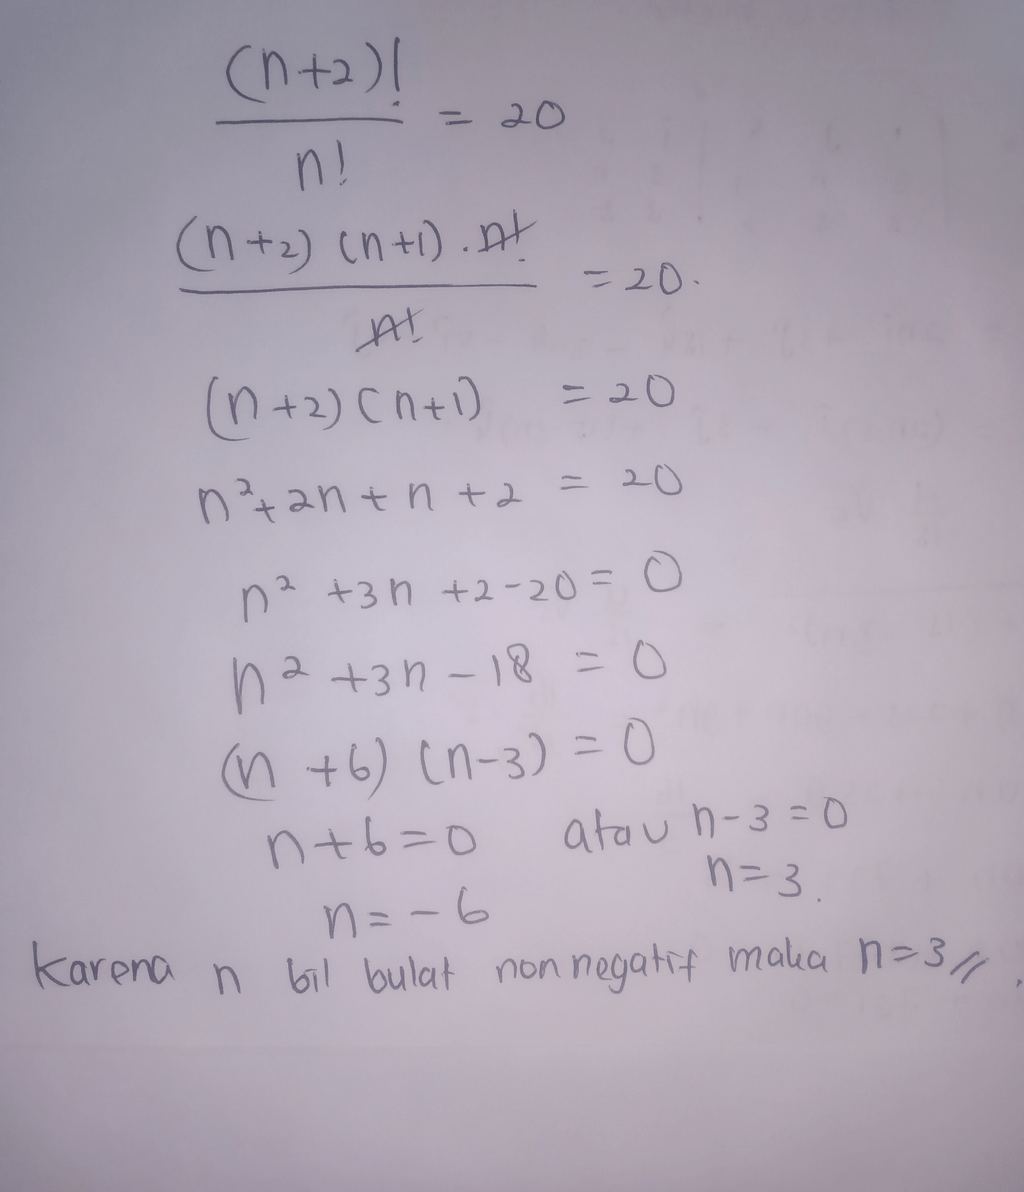 (n+2)!
= 20
n!
(n+2) (n+1) . n!
= 20.
n!
(n+2) (n+1) = 20
n²+2n+n+2 = 20
n² +3n +2-20 = 0
n² +3n - 18 = 0
(n +6) (n-3) = 0
n+6=0 atau n-3=0
n=3.
n=-6
Karena n bil bulat nonnegatif maka n=3//